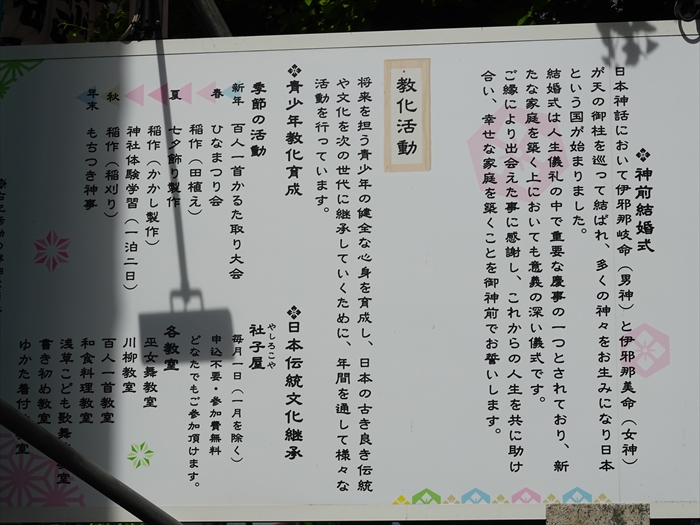 ❖神前結婚式
日本神話において伊邪那岐命（男神）と伊邪那美命（女神）
が天の御柱を巡って結ばれ、多くの神々をお生みになり日本
という国が始まりました。
結婚式は人生儀礼の中で重要な慶事の一つとされており、新
たな家庭を築く上においても意義の深い儀式です。
ご縁により出会えた事に感謝し、これからの人生を共に助け
合い、幸せな家庭を築くことを御神前でお誓いします。
教化活動
将来を担う青少年の健全な心身を育成し、日本の古き良き伝統
や文化を次の世代に継承していくために、年間を通して様々な
活動を行っています。
❖青少年教化育成
季節の活動
新年 百人一首かるた取り大会
春 ひなまつり会
稲作（田植え）
夏 七夕飾り製作
稲作（かかし製作）
神社体験学習（一泊二日）
秋 稲作（稲刈り）
年末 もちつき神事
❖日本伝統文化継承
社子屋
やしろこや
毎月一日（一月を除く）
申込不要・参加費無料
どなたでもご参加頂けます。
各教室
巫女舞教室
川柳教室
百人一首教室
和食料理教室
浅草こども歌舞 教室
書き初め教室
ゆかた着付 教室